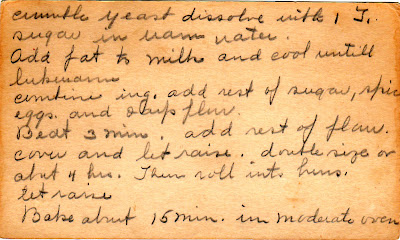 crumble yeast dissolve with 1 T.
sugar in warm water.
Add fat to milk and cool untill
lukewarm
combine ing. add rest of sugar, spic
eggs. and 2 cups flour.
Beat 3 min. add rest of flour.
cover and let raise. double size or
abut 4 hrs. Then roll into buns.
let raise
Bake abut 15 min. in moderate oven